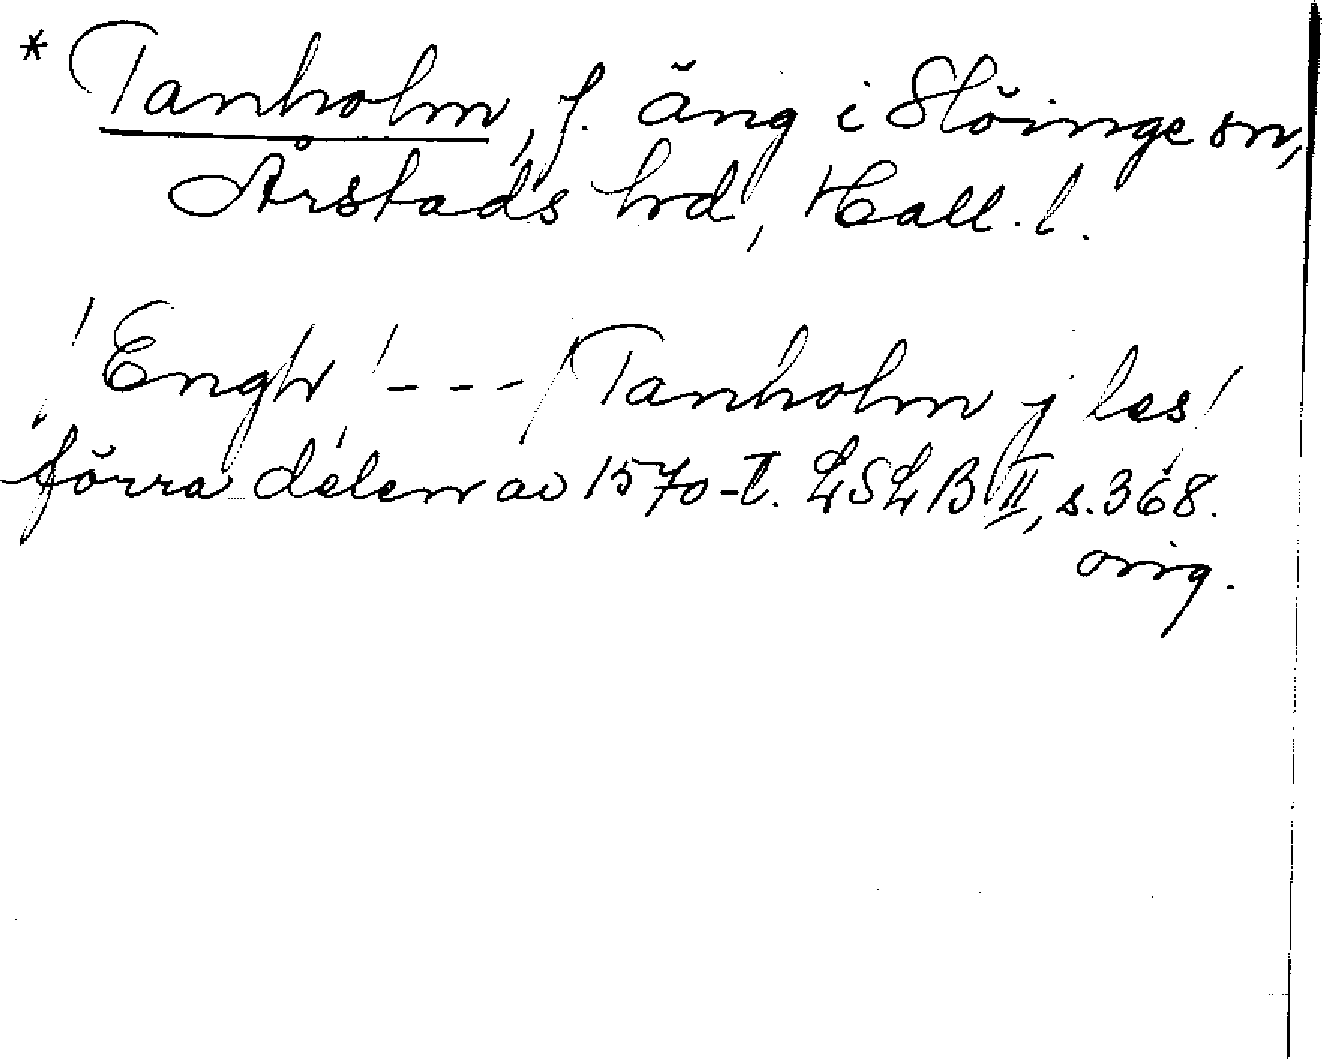 * Tanholm, f. äng i Slöinge sn,
Årstads hrd, Hall. l.
/Engh/ --- /Tanholm j las/
förra delen av 1570-t. LSLB II, s. 368.
orig.